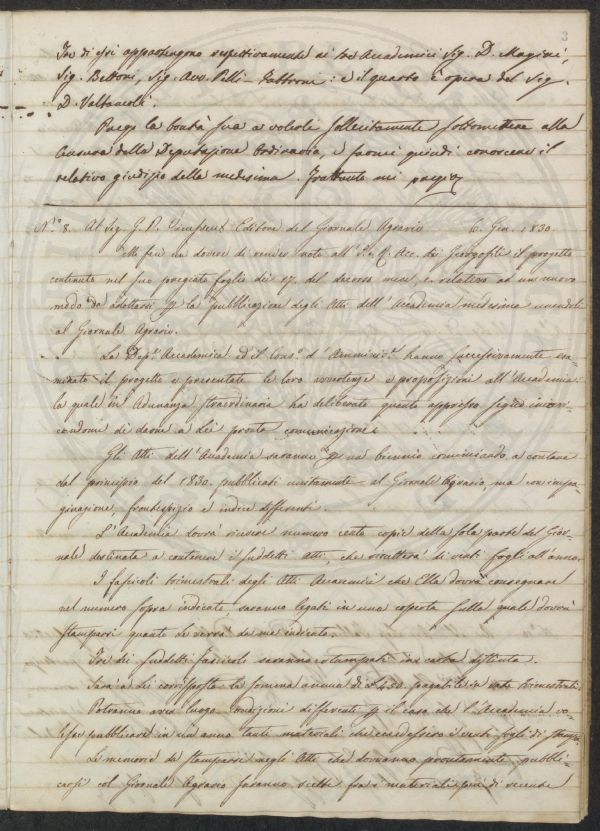 3
Tre di essi appartengono respettivamente ai tre Accademici Sig. D. Magini,
Sig. Bettoni, Sig. Avv. Pelli-Fabbroni: e il quarto è opera del Sig.
D. Valtancoli.
Prego la bontà sua a volerli sollecitamente sottomettere alla
Censura della Deputazione Ordinaria, e farmi quindi conoscere il
relativo giudizio della medesima. Frattanto mi pregio
N.º 8. Al Sig. G. P. Vieusseux Editore del Giornale Agrario 6. Gen. 1830
Mi feci un dovere di render note all' I. e R. Acc. dei Georgofili il progetto
contenuto nel suo pregiato foglio dei 17. del decorso mese, e relativo ad un nuovo
modo da adottarsi p la pubblicazione degli Atti dell'Accademia medesima unendoli
al Giornale Agrario.
La Dep.e Accademica ed il Cons.o d'Amminis.e hanno successivamente esa-
minato il progetto e presentate le loro avvertenze e proposizioni all'Accademia:
la quale in Adunanza straordinaria ha deliberato quanto appresso segue incari-
candomi di darne a Lei pronta comunicazione.
Gli Atti dell'Accademia saranno p un biennio cominciando a contare
dal principio del 1830. pubblicati unitamente al Giornale Agrario, ma con impa-
ginazione, frontespizio e indice differenti.
L'Accademia dovrà ricevere numero cento copie della sola parte del Gior-
nale destinata a contenere i suddetti Atti, che risulterà di venti fogli all'anno.
I fascicoli trimestrali degli Atti Accademici che Ella dovrà consegnare
nel numero sopra indicato, saranno legati in una coperta sulla quale dovrà
stamparsi quanto Le verrà da me indicato.
Tre dei suddetti fascicoli saranno stampati in carta distinta.
Sarà a Lei corrisposta la somma annua di 430. pagabile in rate trimestrali.
Potranno aver luogo condizioni differenti p il caso che l'Accademia vo-
lesse pubblicare in un anno tanti materiali che eccedessero i venti fogli di stampa.
Le memorie da stamparsi negli Atti che dovranno prontamente pubbli-
carsi col Giornale Agrario saranno scelte fra i materiali più di recente